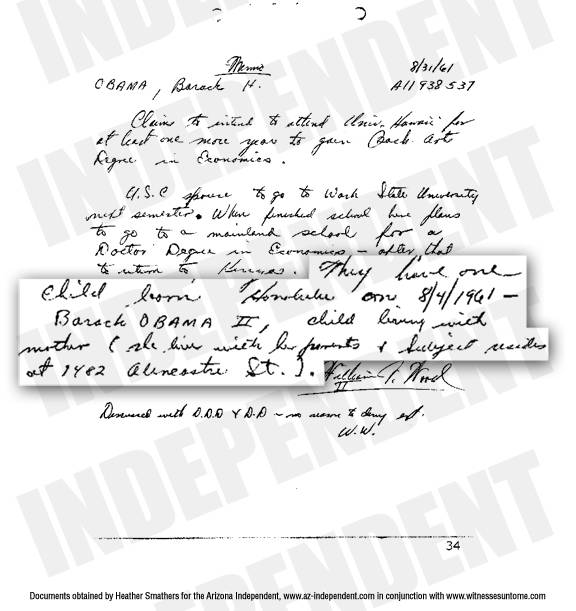 Memo 8/31/61
OBAMA, Barack H. A11 938 537
Claims to intend to attend Univ. Hawaii for
at least one more year to gain Bach. Arts
Degree in Economics.
U.S.C spouse to go to Wash State University
next semester. When finished school here plans
to go to a mainland school for a
Doctor Degree in Economics – after that
to return to Kenya. They have one
child born Honolulu on 8/4/1961 –
Barack OBAMA II, child living with
mother (she lives with her parents & subject resides
at 1482 Alencastre St.).
William T. Wood
II
Discussed with D.D.D & D.D – no reason to deny ext.
W.W.
34
INDEPENDENT
INDEPENDENT
INDEPENDENT
INDEPENDENT
Documents obtained by Heather Smathers for the Arizona Independent, www.az-independent.com in conjunction with www.witnessesuntome.com